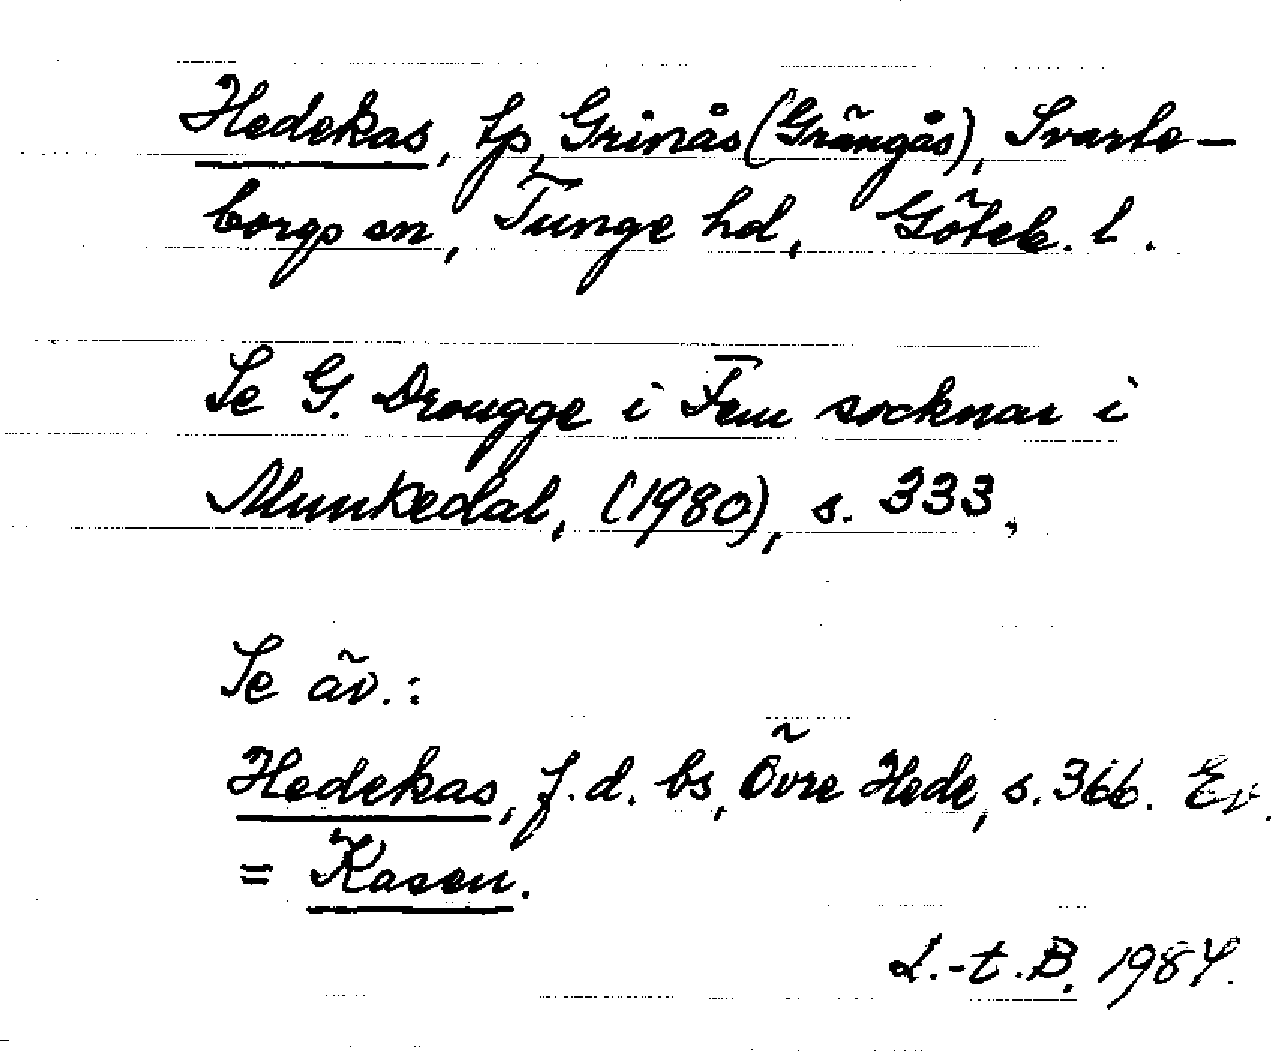 Hedekas, tp, Grinås (Grängås), Svarte-
borgs sn, Tunge hd, Göteb. l.
Se G. Drougge i Fem socknar i
Munkedal, (1980), s. 333,
Se äv.:
Hedekas, f.d. bs, Övre Hede, s. 366. Ev.
= Kasen.
L.-t. B. 1984.